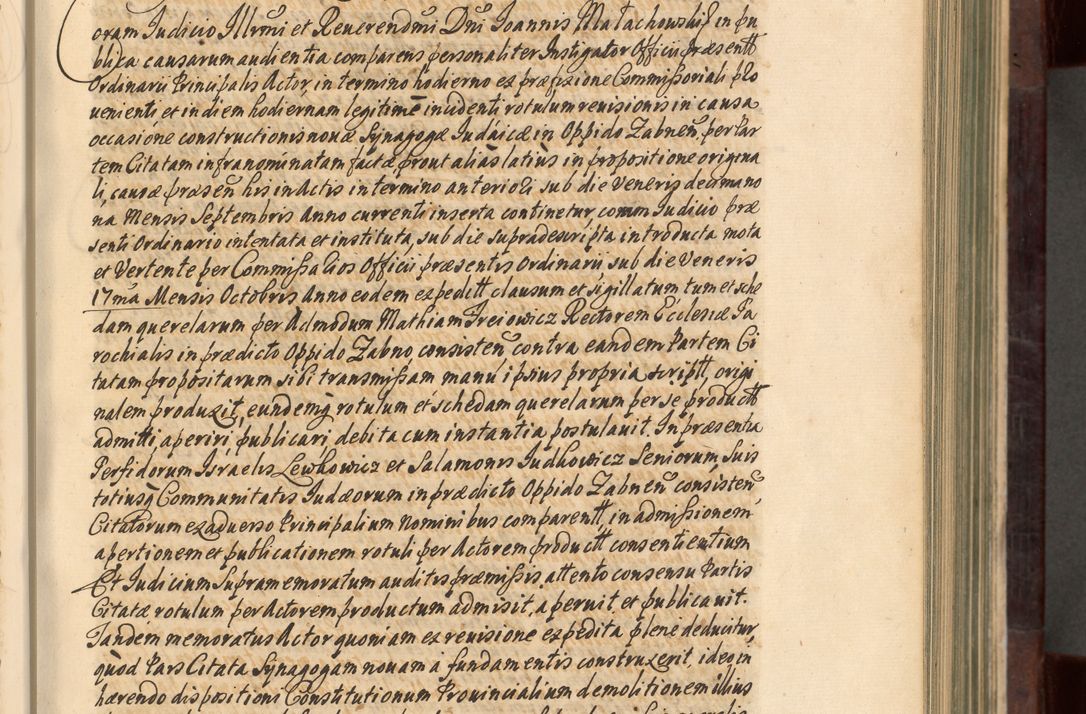 oram Judicio Illrmi et Reuerendmi Dni Joannis Małachowski in pu
blica causarum audientia comparens personaliter Instigator Officii præsentt
Ordinarii Principalis Actor, in termino hodierno ex præfixione Commissoriali pro
uenienti et in diem hodiernam legitimè incidenti rotulum reuisionis in causa
occasione constructionis nouæ Synagogæ Judaicæ in Oppido Zabnen̄, per Par
tem Citatam infranominatam factæ, prout alias latius in propositione origina
li, causæ præsen̄ his in Actis in termino anteriori sub die Veneris decimano
na Mensis Septembris Anno currenti inserta continetur, coram Judicio præ
senti Ordinario intentata et instituta, sub die supradescripta introducta mota
et Vertente per Commissarios Officii præsentis Ordinarii sub die Veneris
17ma Mensis Octobris Anno eodem expeditt clausum et sigillatum tum et sche
dam querelarum per Admodum Mathiam Freiowicz Rectorem Ecclesiæ Pa
rochialis in prædicto Oppido Zabno consisten̄ contra eandem Partem Ci
tatam propositarum sibi transmissam manu ipsius propria scriptt, origi
nalem produxit, eundemq̄ rotulum et schedam querelarum per se productt
admitti, aperiri, publicari, debita cum instantia postulauit. In præsentia
Perfidorum Israelis Lewkowicz et Salamonis Judkowicz Seniorum, suis
totiusq̄ Communitatis Judæorum in prædicto Oppido Zabnen̄ consisten̄
Citatorum ex aduerso Principalium nominibus comparentt, in admissionem
apertionem et publicationem rotuli per Actorem productt consentientium
Et Judicium Supramemoratum auditis præmissis, attento consensu Partis
Citatæ, rotulum per Actorem productum admisit, aperuit, et publicauit.
Tandem memoratus Actor quoniam ex reuisione expedita plenè deducitur,
quod Pars Citata Synagogam nouam à fundamentis construxerit, ideo in
hærendo dispositioni Constitutionum Prouincialium demolitionem illius